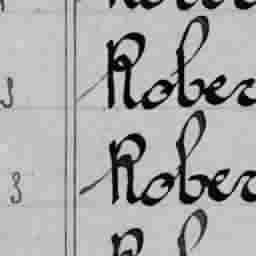 3 Rober
3 Rober